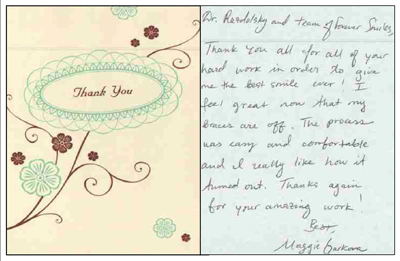 Thank You
Dr. Razdolsky and team of Forever Smiles,
Thank You all for all of your
hard work in order to give
me the best smile ever! I
feel great now that my
braces are off. The process
was easy and comfortable
and I really like how it
turned out. Thanks again
for your amazing work!
Best,
Maggie